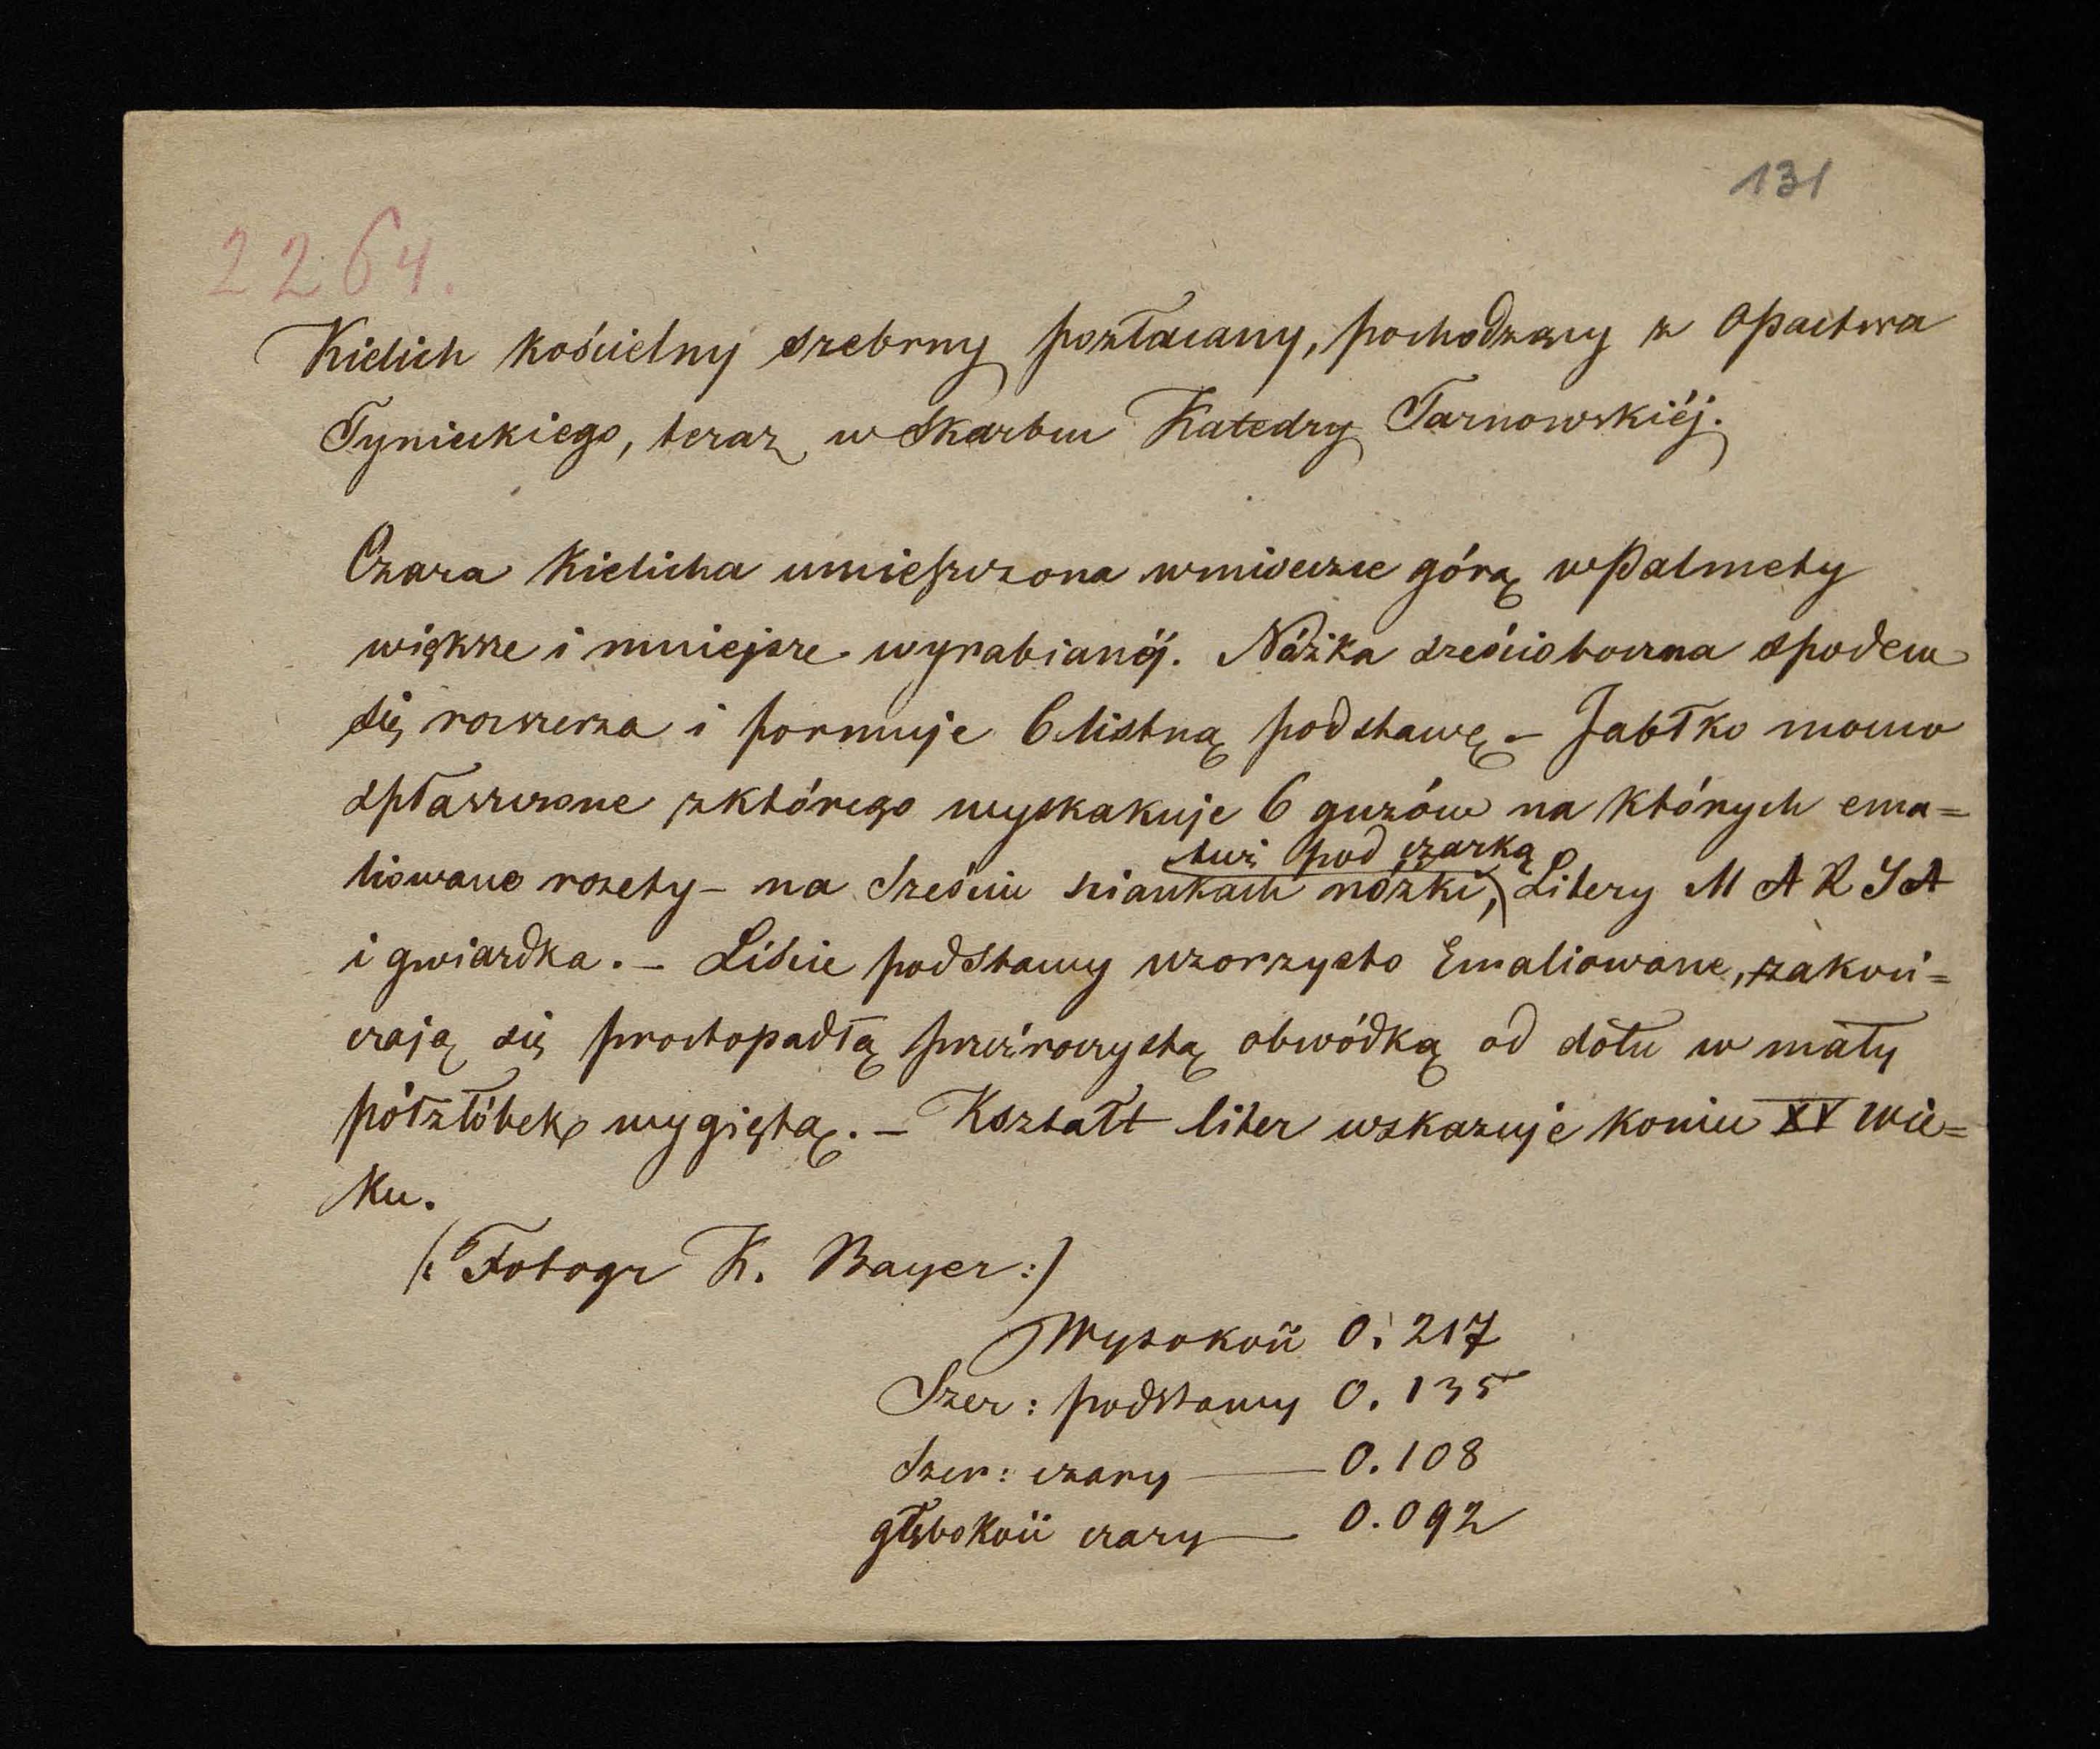 131
2264.
Kielich kościelny srebrny pozłacany, pochodzący z Opactwa
Tynieckiego, teraz w Skarbcu Katedry Tarnowskiéj.
Czara Kielicha umieszczona w miseczce górą w Palmety
większe i mniejsze wyrabianéj. Nóżka sześcioboczna spodem
się rozszerza i formuje 6 listną podstawę. – Jabłko mocno
spłaszczone z którego wyskakuje 6 guzów na których ema=
tuż pod czarką
liowane rozety – na sześciu sciankach nóżki, Litery M A R Y A
i gwiazdka. – Liście podstawy wzorzysto Emaliowane, zakoń=
czają się prostopadłą przeźroczystą obwódką od dołu w mały
półżłóbek wygiętą. – Kształt liter wskazuje koniec XV wie=
ku.
(: Fotogr K. Bayer :)
Wysokość 0.217
Szer: podstawy 0.135
Szer: czary — 0.108
głębokość czary — 0.092